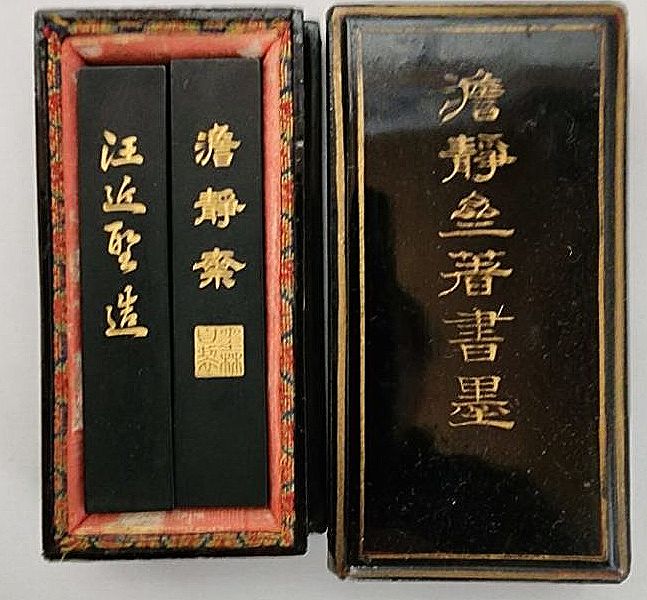 澹靜亝著書墨
澹靜齋
汪近聖造